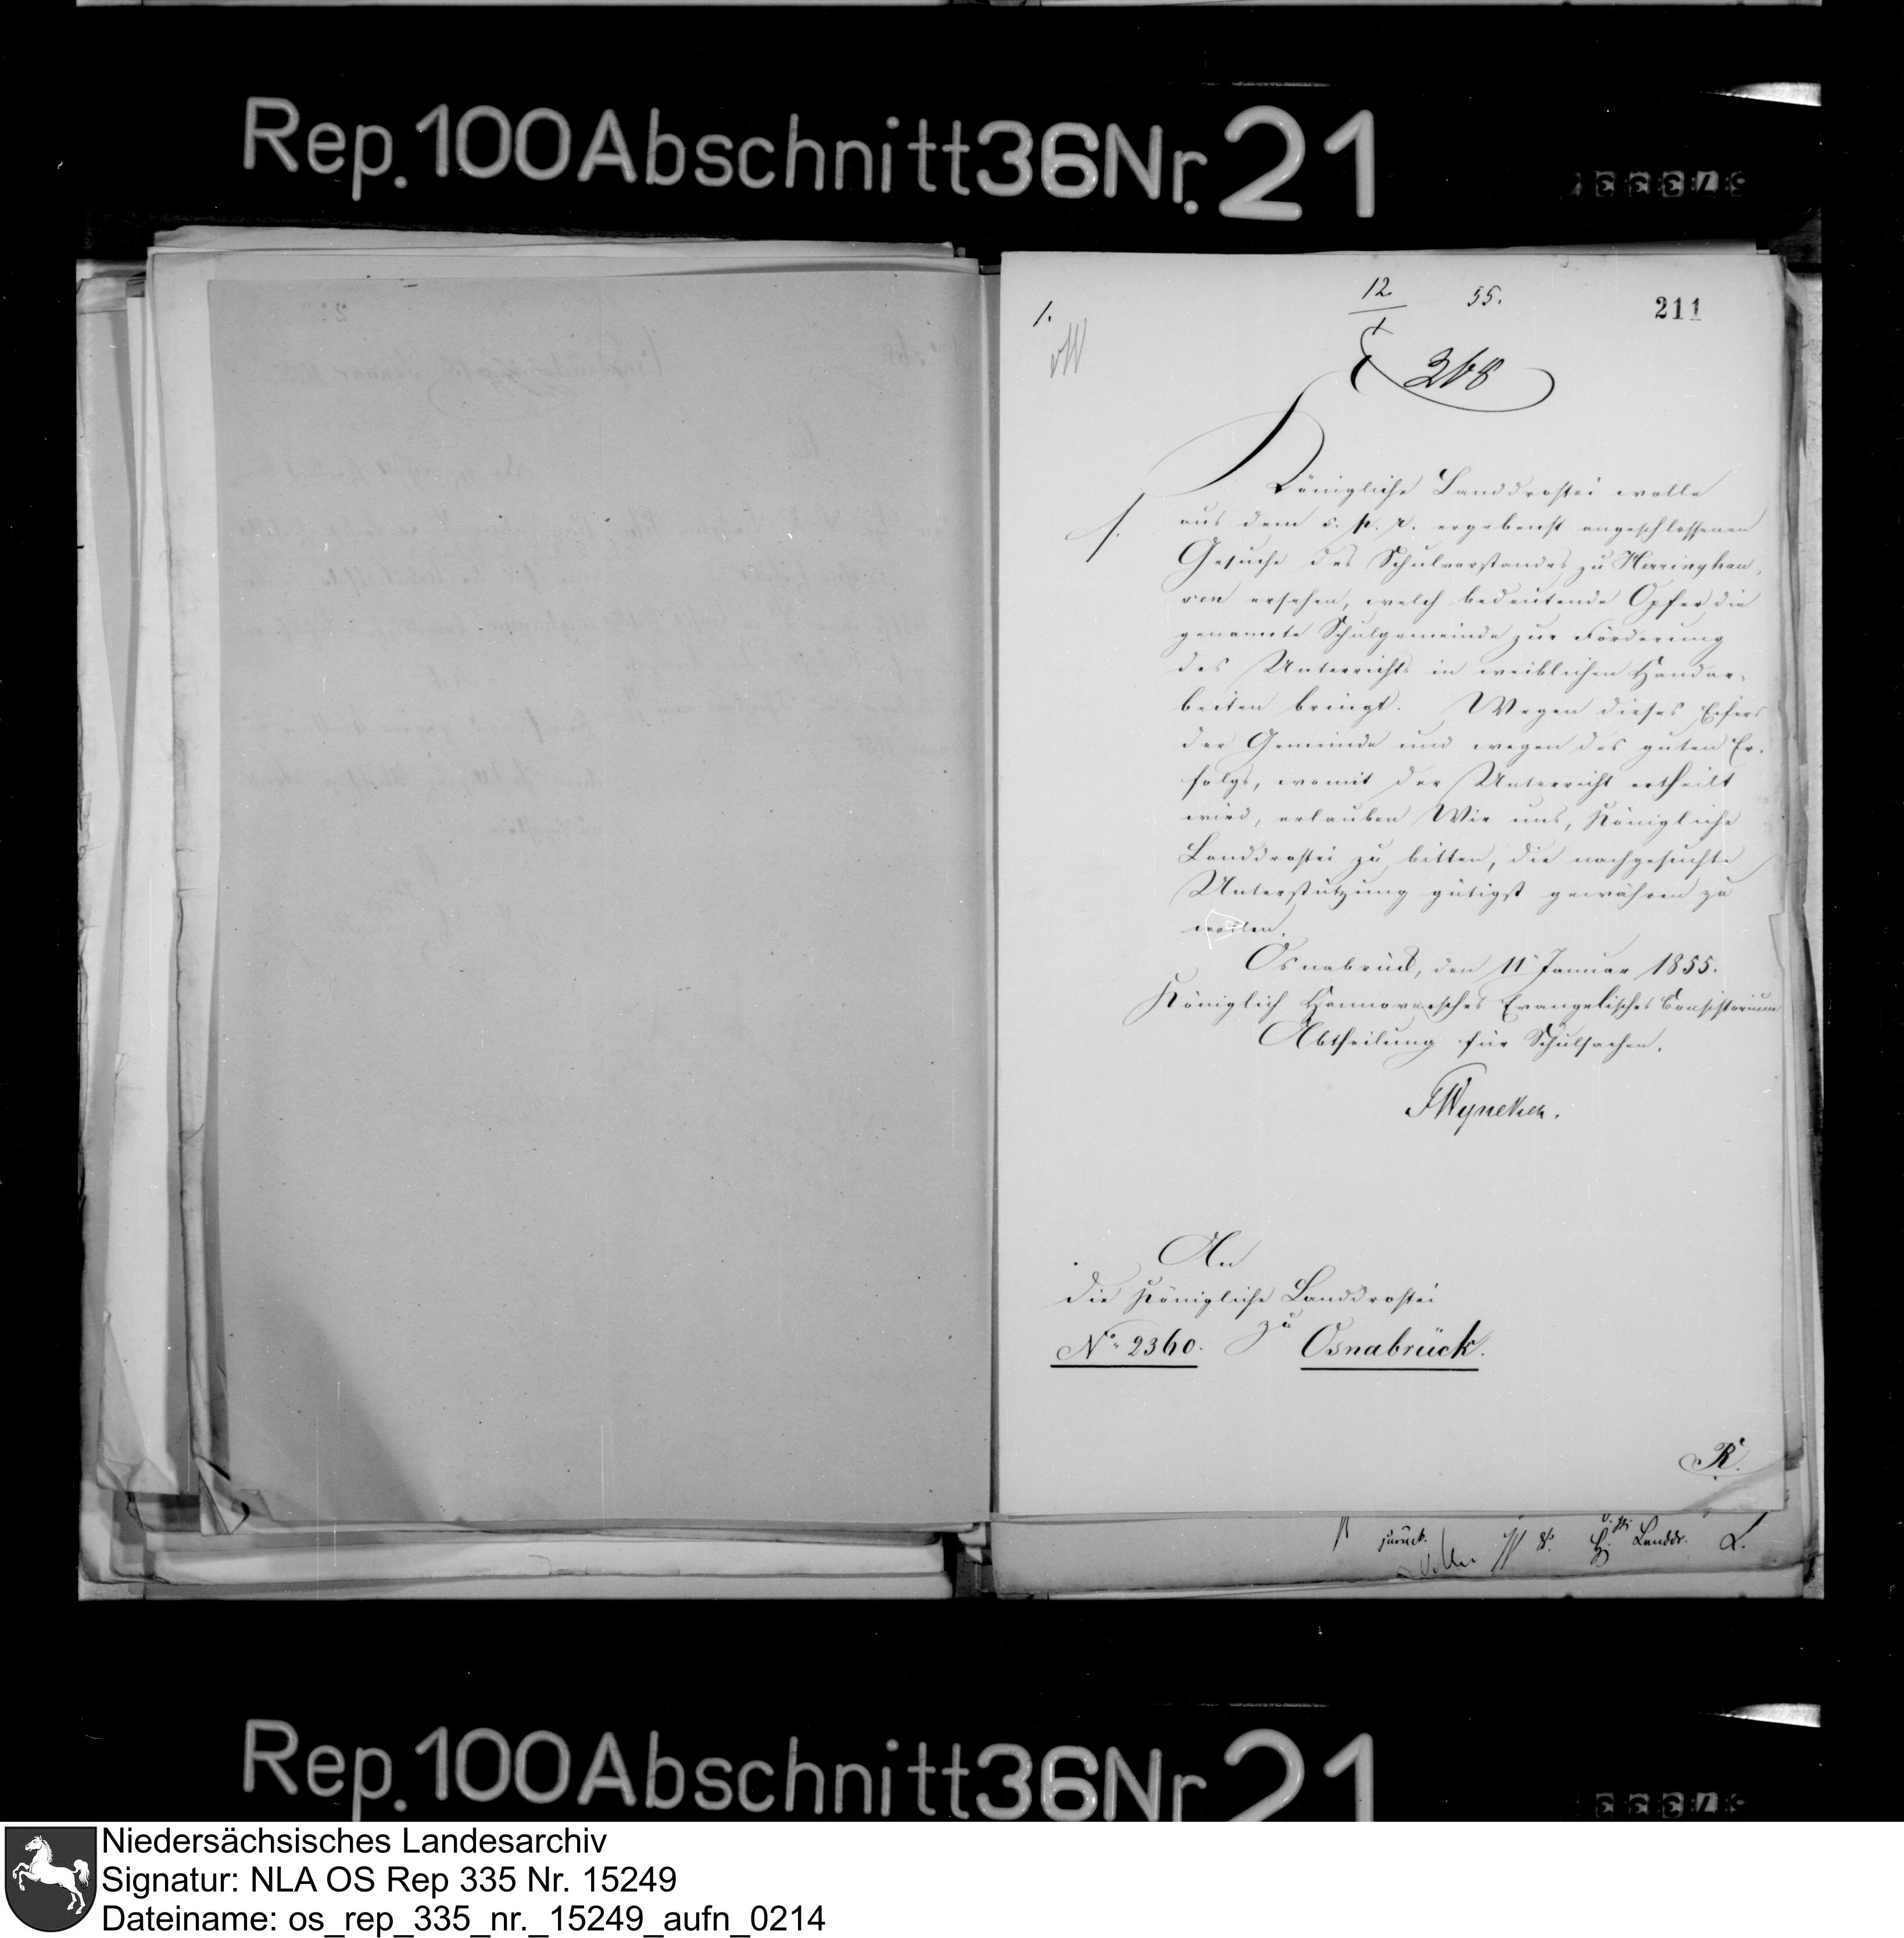 Rep. 100 Abschnitt 36 Nr. 21
1.
12. 55.
1
211
368
Königliche Landdrostei wolle
1. aus dem s. p. r. ergebenst angeschlossenen
Gesuche des Schulvorstandes zu Herringhau-
sen ersehen, welch bedeutende Opfer die
genannte Schulgemeinde zur Förderung
des Unterrichts in weiblichen Handar-
beiten bringt. Wegen dieses Eifers
der Gemeinde und wegen des guten Er-
folgs, womit der Unterricht ertheilt
wird, erlauben Wir uns, Königliche
Landdrostei zu bitten, die nachgesuchte
Unterstützung gütigst gewähren zu
wollen.
Osnabrück, den 11 Januar 1855.
Königlich Hannoversches Evangelisches Consistorium
Abtheilung für Schulsachen.
FWyneken.
An
die Königliche Landdrostei
zu
No. 2360. Osnabrück.
R.
zurück. Landdr. L.
Rep. 100 Abschnitt 36 Nr 21
Niedersächsisches Landesarchiv
Signatur: NLA OS Rep 335 Nr. 15249
Dateiname: os_rep_335_nr._15249_aufn_0214